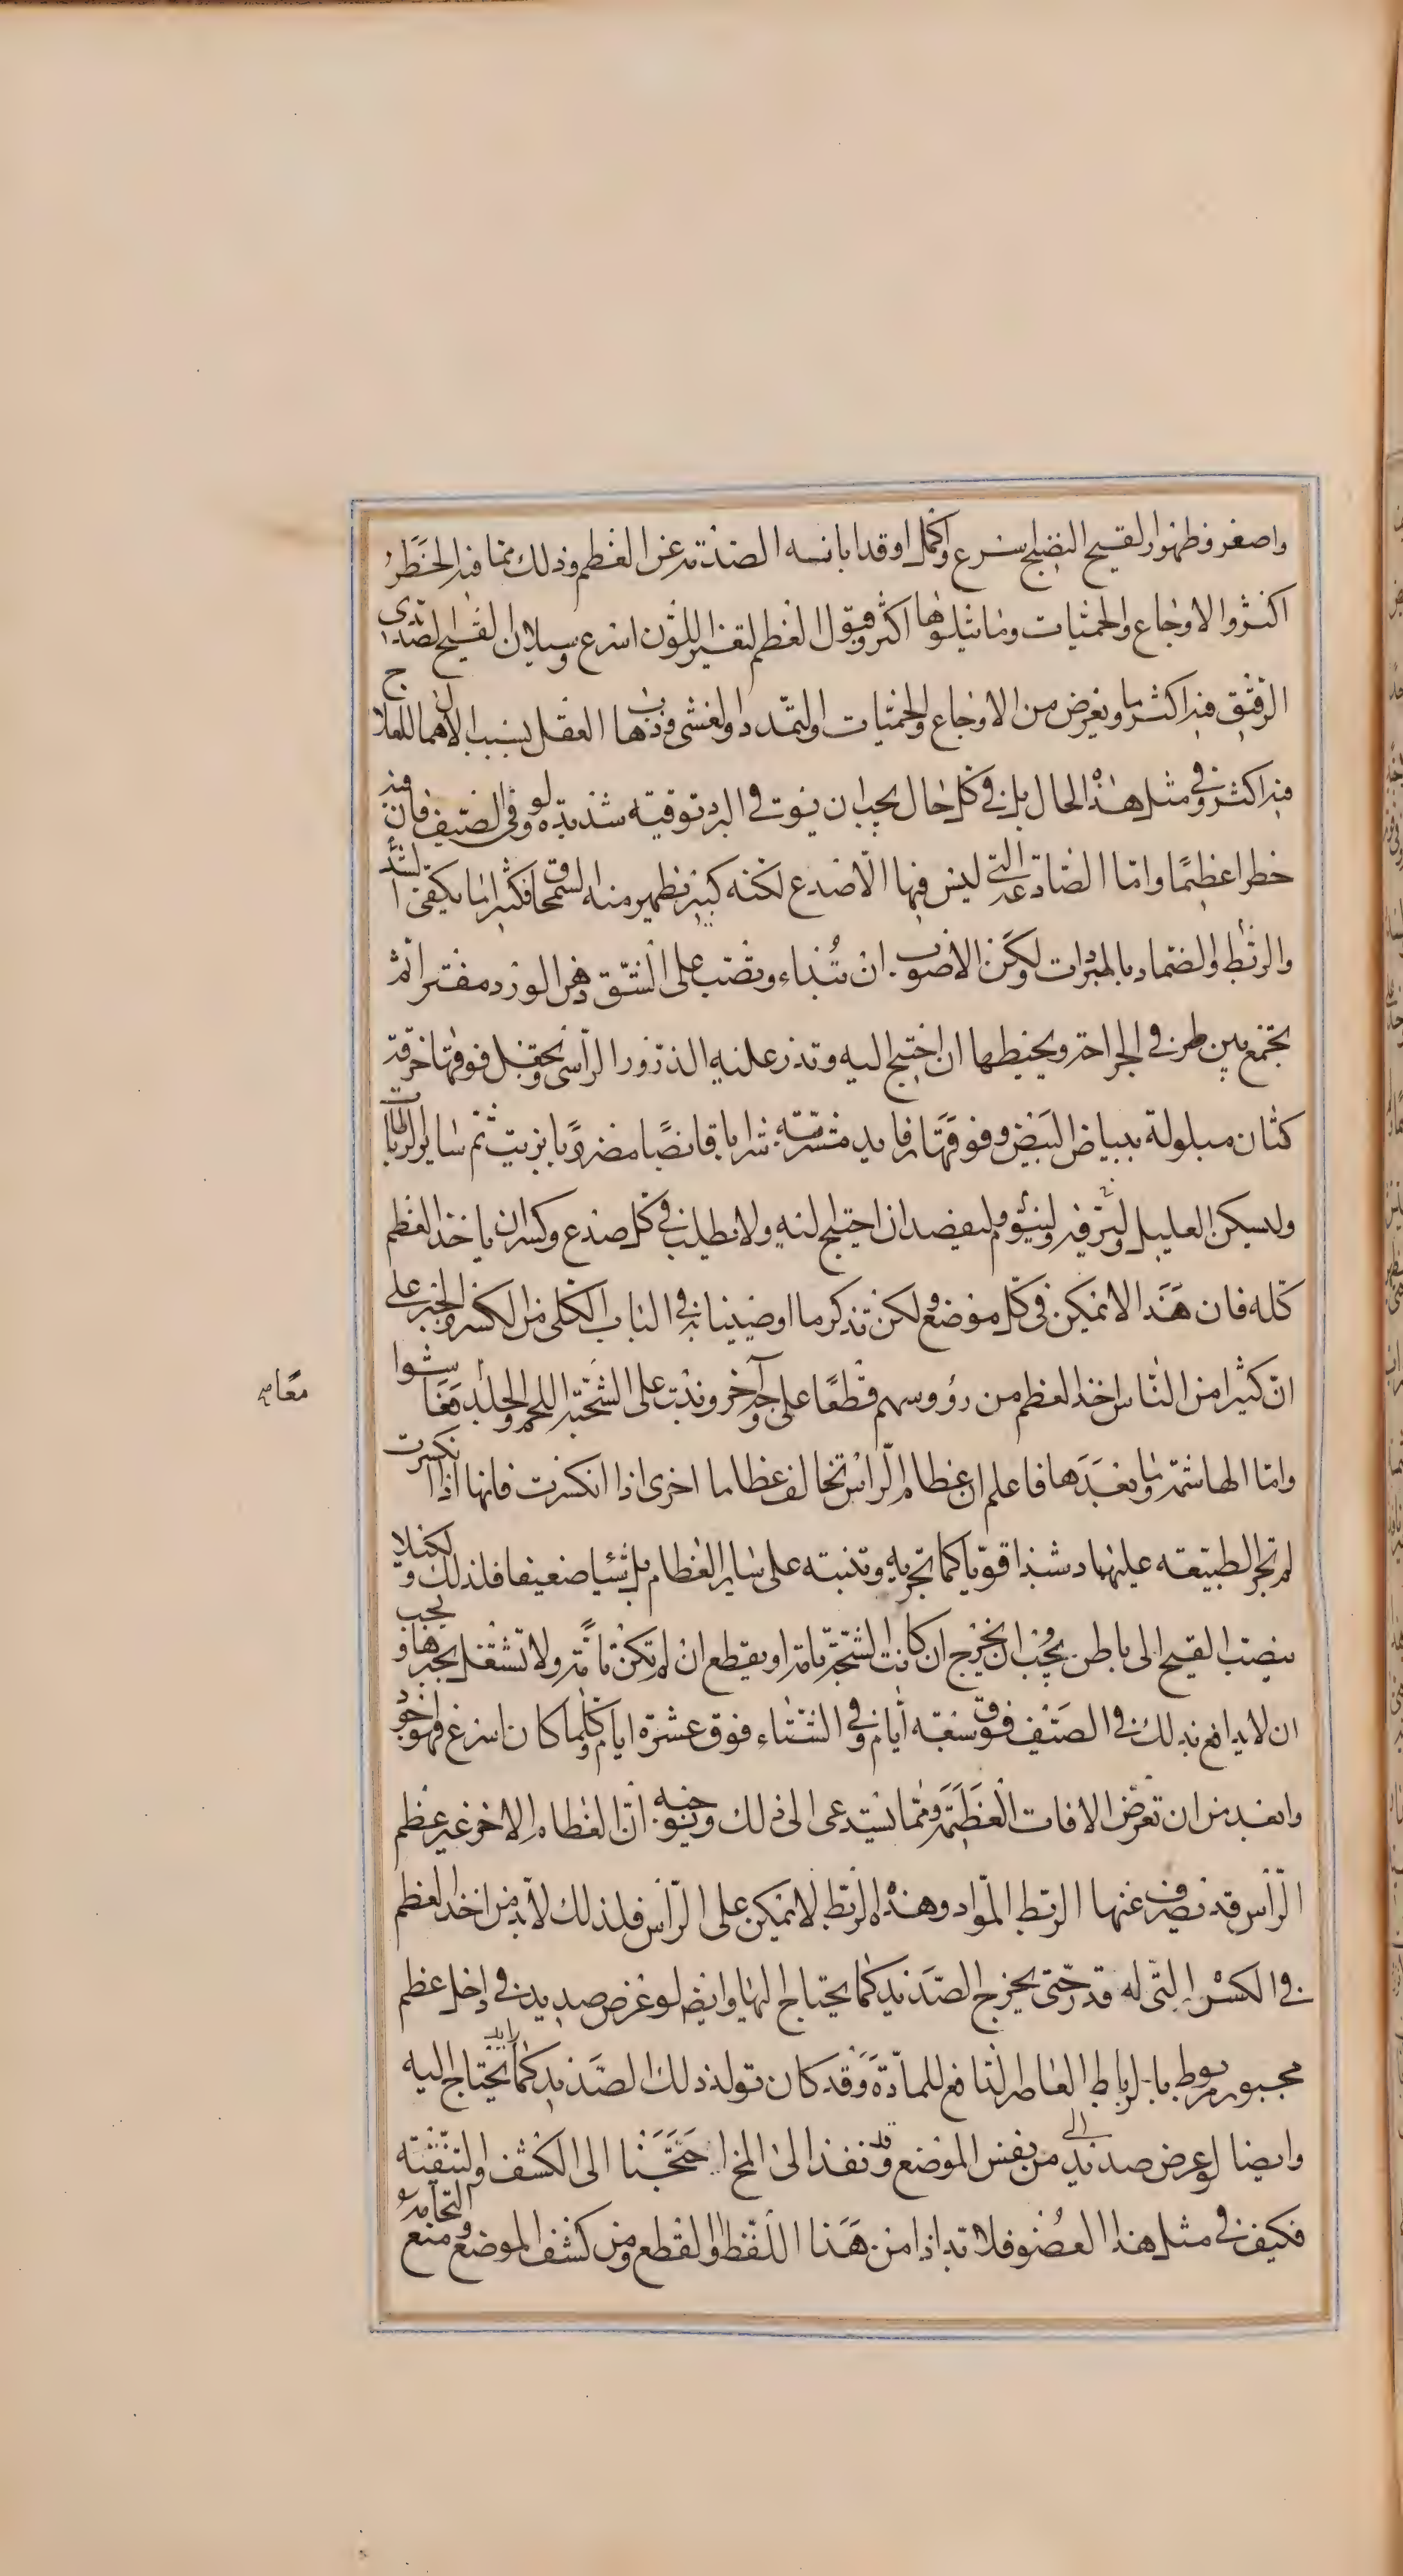 واصغر وظهور القيح النضيج اسرع واكمل او قد ابانسه الصدمة عن العظم وذلك مما فيه الخطر
اكثر والاوجاع والحميات وما يتلوها اكثر وقبول العظم لتغير اللون اسرع وسيلان القيح الصديدي
الرقيق فيه اكثر ما ويعرض من الاوجاع والحميات والتمدد والغشى وذهاب العقل بسبب الاهمال للعلاج
فيه اكثر وفى مثل هذه الحال بل فى كل حال يجب ان يوق فى البرد توقيه شديده ولو فى الصيف فان فيه
خطرا عظيما واما الصادعة التى ليس فيها الا صدع لكنه كبير يظهر منه السمحاق فكثيرا ما يكفى الشد
والربط والضماد بالمبردات ولكن الاصوب ان تبداء وتصب على الشق دهن الورد مفترا ثم
يجتمع بين طرفى الجراحة ويخيطها ان احتيج اليه وتذر عليه الذرور الراسى ويجعل فوقها خرقة
كتان مبلولة ببياض البيض وفوقها رفايد مشربة شرابا قابضا مضروبا بزيت ثم ساير الرباطات
وليسكن العليل وليرفه ولينوم وليفصد ان احتيج اليه ولا يطلب فى كل صدع وكسر ان ياخذ العظم
كله فان هذا لا يمكن فى كل موضع ولكن تذكر ما اوصينا به فى الباب الكلى من الكسر والجبر على
ان كثيرا من الناس اخذ العظم من رؤوسهم قطعا على وجه آخر ونبت على الشجة اللحم والجلد معا وعاشوا
واما الهاشمة وما بعدها فاعلم ان عظام الراس تخالف عظاما اخرى اذا انكسرت فانها اذا انكسرت
لم تجر الطبيعته عليها دشبذا قويا كما تجريه وتنبته على ساير العظام بل شيئا ضعيفا فلذلك ولكيلا
ينصب القيح الى باطن يجب ان يخرج ان كانت الشجة تامة او يقطع ان لم تكن تامة ولا تشتغل بجبرها ويجب
ان لا يدافع بذلك فى الصيف فوق سبعة أيام وفى الشتاء فوق عشرة ايام وكلما كان اسرع فهو اجود
وابعد من ان تعرض الافات العظيمة ومما يستدعى الى ذلك وجنبه ان العظام الاخر غير عظم
الرأس قد تصرف عنها الربط المواد وهذه الربط لا تمكن على الرأس فلذلك لا بد من اخذ العظم
فى الكسر التى له قدر حتى يخرج الصديد كما يحتاج اليها وايضا لو عرض صديد فى داخل عظم
مجبور مربوط بالرباط العاصر النافع للمادة وقد كان تولد ذلك الصديد كما يحتاج اليه
وايضا لو عرض صديد من نفس الموضع وقد نفذ الى المخ احتجنا الى الكشف والتنقية
فكيف فى مثل هذا العضو فلا بد اذا من هذا اللقط والقطع ومن كشف الموضع ومنع التحامه
معا صح